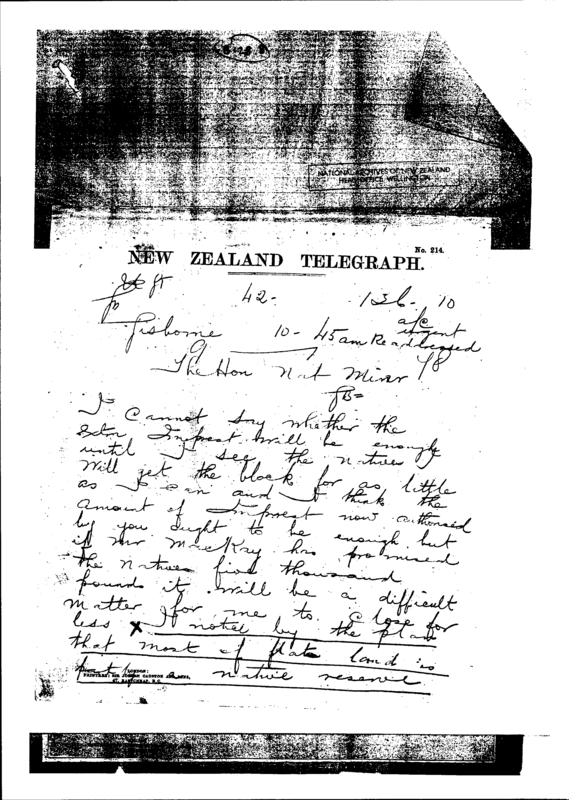 NATIONAL ARCHIVES OF NEW ZEALAND
HEAD OFFICE WELLINGTON
No. 214.
NEW ZEALAND TELEGRAPH.
42-
10
a/c
urgent
Gisborne 10-45am Readdressed
The Hon Nat Minr
I cannot say whether the
Extn Imprest will be enough
until I see the natives
Will get the block for as little
as I can and I think the
amount of Imprest now authorised
by you ought to be enough but
if Mr MacKay has promised
the natives five thousand
pounds it will be a difficult
matter for me to close for
less x I notice by the plan
that most of flat land is
native reserve
LONDON:
PRINTERS: SIR JOSEPH CAUSTON AND SONS,
47, EASTCHEAP, E.C.